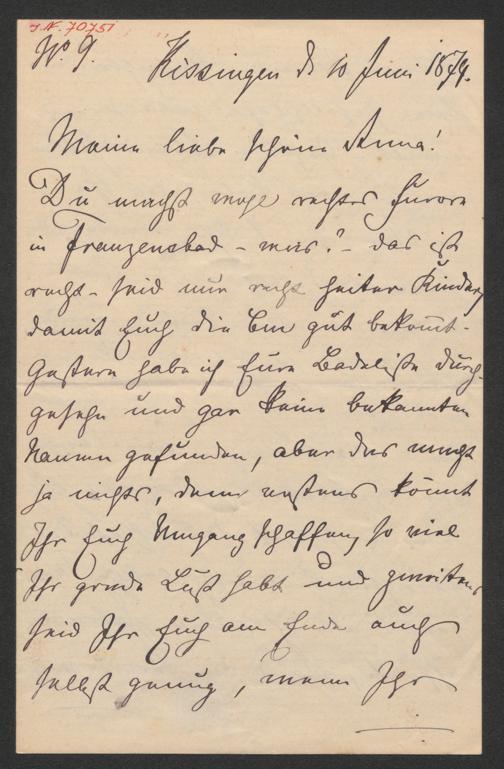 J.N. 70751
No. 9. Kissingen d 10 Juni 1879.
Meine liebe schöne Anna!
Du machst wohl rechtes Furore
in Franzensbad - was? - das ist
recht - seid nur recht heiter Kinder,
damit Euch die Cur gut bekom̅t -
Gestern habe ich Eure Badeliste durch-
gesehn und gar keine bekannten
Namen gefunden, aber das macht
ja nichts, denn erstens könnt
Ihr Euch Umgang schaffen, so viel
Ihr grade Lust habt und zweitens
seid Ihr Euch am Ende auch
selbst genug, wenn Ihr